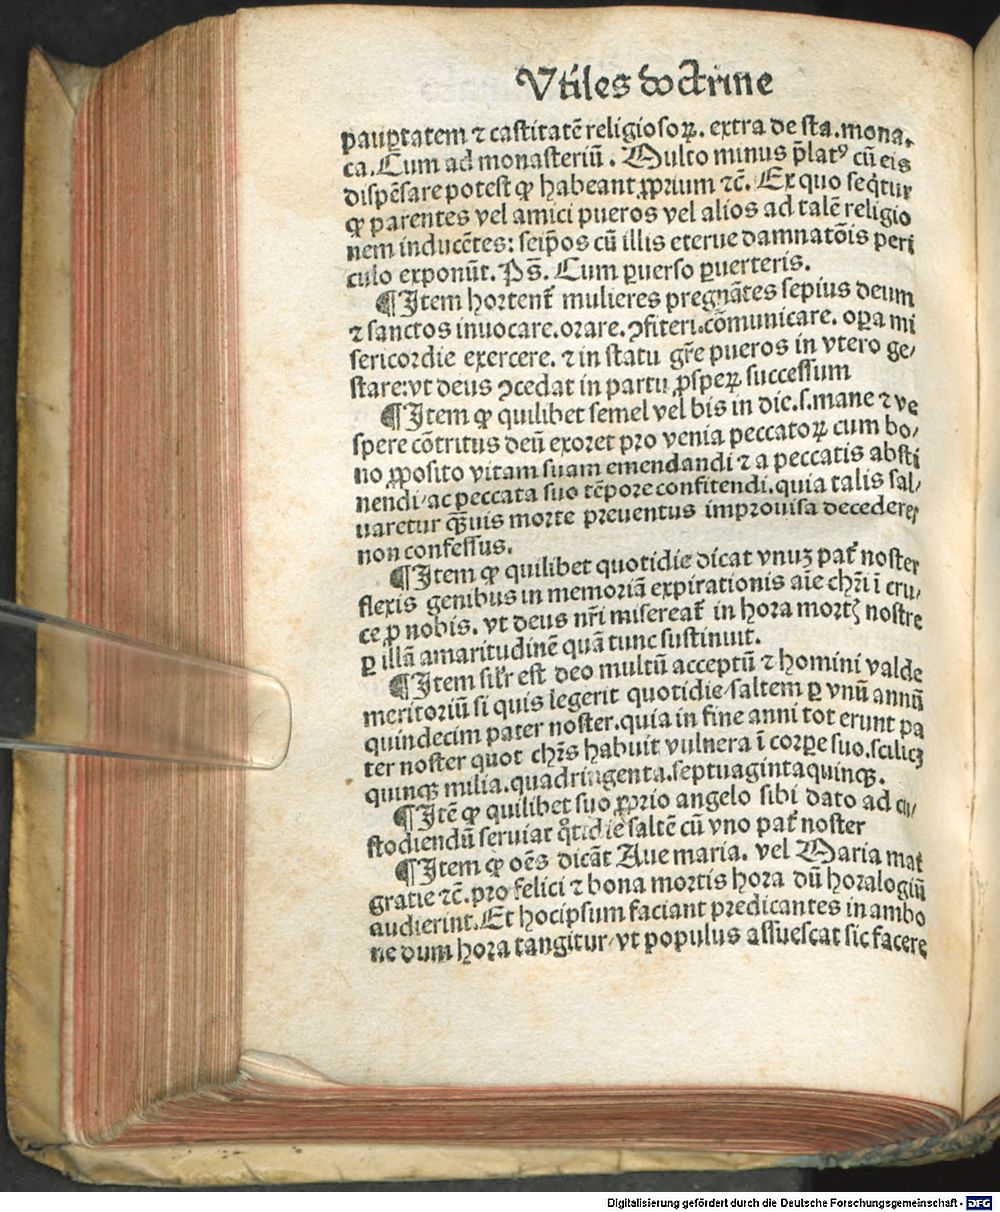 Vtiles doctrine
paup̱tatem ⁊ castitatē religiosoꝝ. extra de sta. mona.
ca. Cum ad monasteriū. Multo minus p̄latꝰ cū eis
dispēsare potest ꝙ habeant ꝓprium ⁊c̄. Ex quo seq̄tur
ꝙ parentes vel amici pueros vel alios ad talē religio
nem inducētes: seip̄os cū illis eterne damnatōis peri
culo exponūt. Ps̄. Cum ꝑuerso ꝑuerteris.
¶Item hortent᷑ mulieres pregnātes sepius deum
⁊ sanctos inuocare. orare. ꝯfiteri. cōmunicare. oꝑa mi
sericordie exercere. ⁊ in statu gr̄e pueros in vtero ge⸗
stare: vt deus ꝯcedat in partu ꝓsperꝝ successum
¶Item ꝙ quilibet semel vel bis in die. s. mane ⁊ ve
spere cōtritus deū exoret pro venia peccatoꝝ cum bo⸗
no ꝓposito vitam suam emendandi ⁊ a peccatis absti
nendi/ ac peccata suo tēpore confitendi. quia talis sal⸗
uaretur qͣuis morte preuentus improuisa decederet
non confessus.
¶Item ꝙ quilibet quotidie dicat vnuꝫ pat᷑ noster
flexis genibus in memoriā expirationis aīe chr̄i ī cru⸗
ce ꝓ nobis. vt deus nr̄i misereat᷑ in hora mortꝭ nostre
ꝑ illā amaritudinē quā tunc sustinuit.
¶Item sil̄r est deo multū acceptū ⁊ homini valde
meritoriū si quis legerit quotidie/ saltem ꝑ vnū annū
quindecim pater noster. quia in fine anni tot erunt pa
ter noster quot chr̄s habuit vulnera ī corꝑe suo. scilicꝫ
quinqꝫ milia. quadringenta. septuagintaquinqꝫ.
¶Itē ꝙ quilibet suo ꝓprio angelo sibi dato ad cu⸗
stodiendū seruiat q̄tidie saltē cū vno pat᷑ noster
¶Item ꝙ oēs dicāt Aue maria. vel Maria mat᷑
gratie ⁊c̄. pro felici ⁊ bona mortis hora dū horalogiū
audierint. Et hocipsum faciant predicantes in ambo
ne dum hora tangitur/ vt populus assuescat sic facere
Digitalisierung gefördert durch die Deutsche Forschungsgemeinschaft - DFG